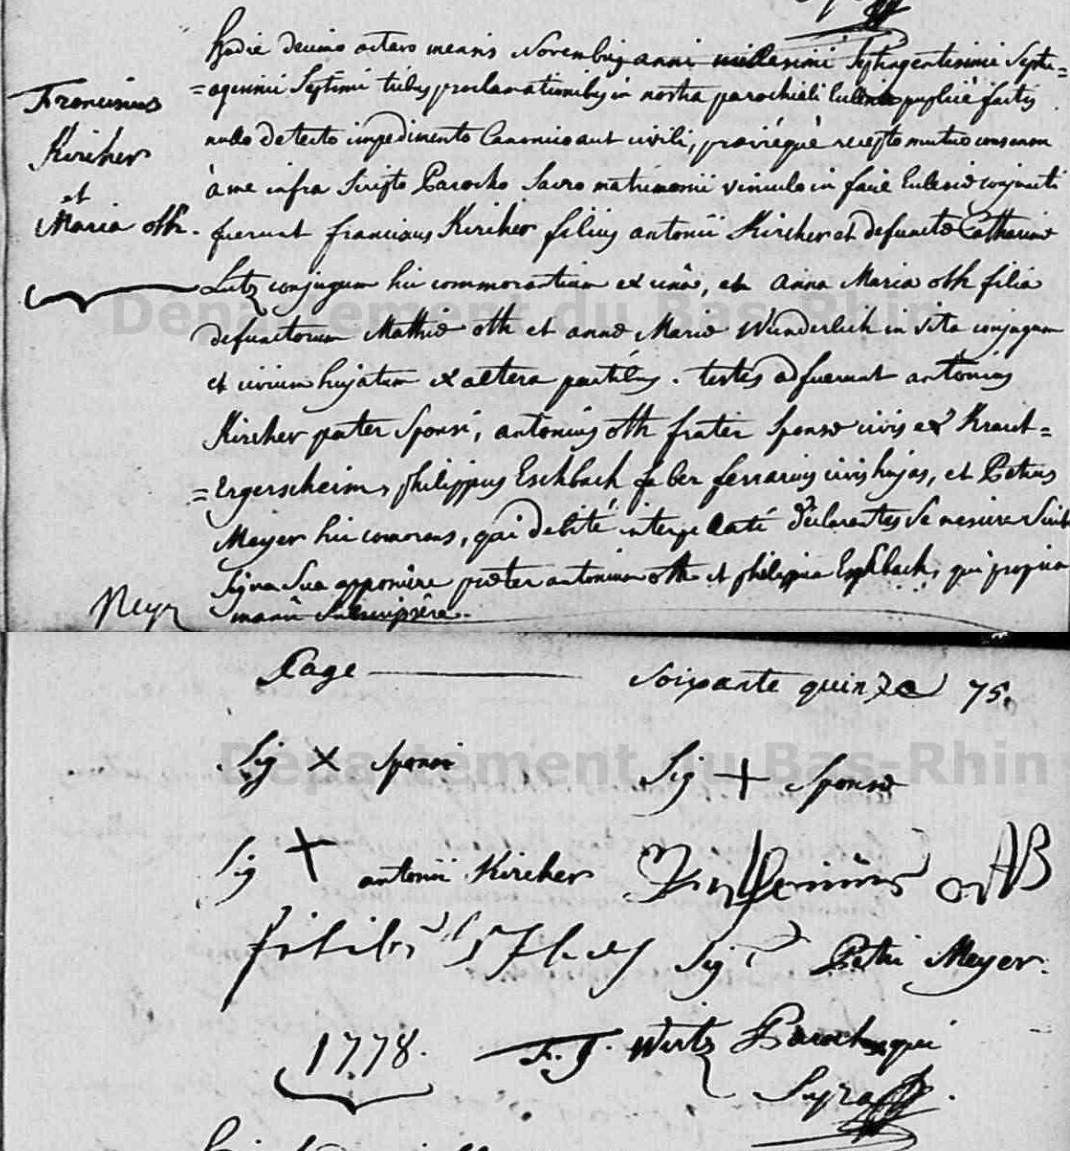 Franciscus
Kircher
et
Maria oth.
Hodie decimo octavo mensis Novembris anni millesimi Septingentesimi Septu=
=agesimi Septimi tribus proclamationibus in nostra parochiali Ecclesia publicè factis
nullo detecto impedimento Canonico aut civili, praeviéque recepto mutuo consensu
à me infra Scripto Parocho Sacro matrimonii vinculo in facie Ecclesiæ conjuncti
fuerunt franciscus Kircher filius antonii Kircher et defunctæ Catharinæ
Lutz conjugum hic commorantium ex unâ, et anna Maria oth filia
defunctorum Mathiæ oth et annæ Mariæ Wunderlich in vita conjugum
et civium hujatum ex altera partibus. testes adfuerunt antonius
Kircher pater Sponsi, antonius oth frater Sponsæ civis ex Kraut=
=ergersheim, philippus Eschbach faber ferrarius civis hujas, et Petrus
Meyer hic comorans, qui debité interpellati declarantes Se nescire Scrib
Signa Sua apposuère præter antonium oth et philippum Eschbach, qui propria
manu Subscripsêre.
Meyer
Page soixante quinze 75.
Sig X Sponsi Sig + Sponsæ
Sig + antonii Kircher
Sig Petri Meyer.
1778. F. J. Wirtz Parochus qui
Supra